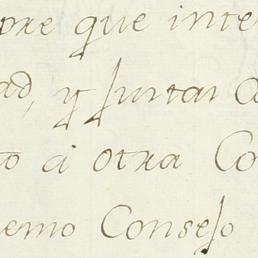 pre que inte
ad, y juntar a
to a otra Co
emo Consejo